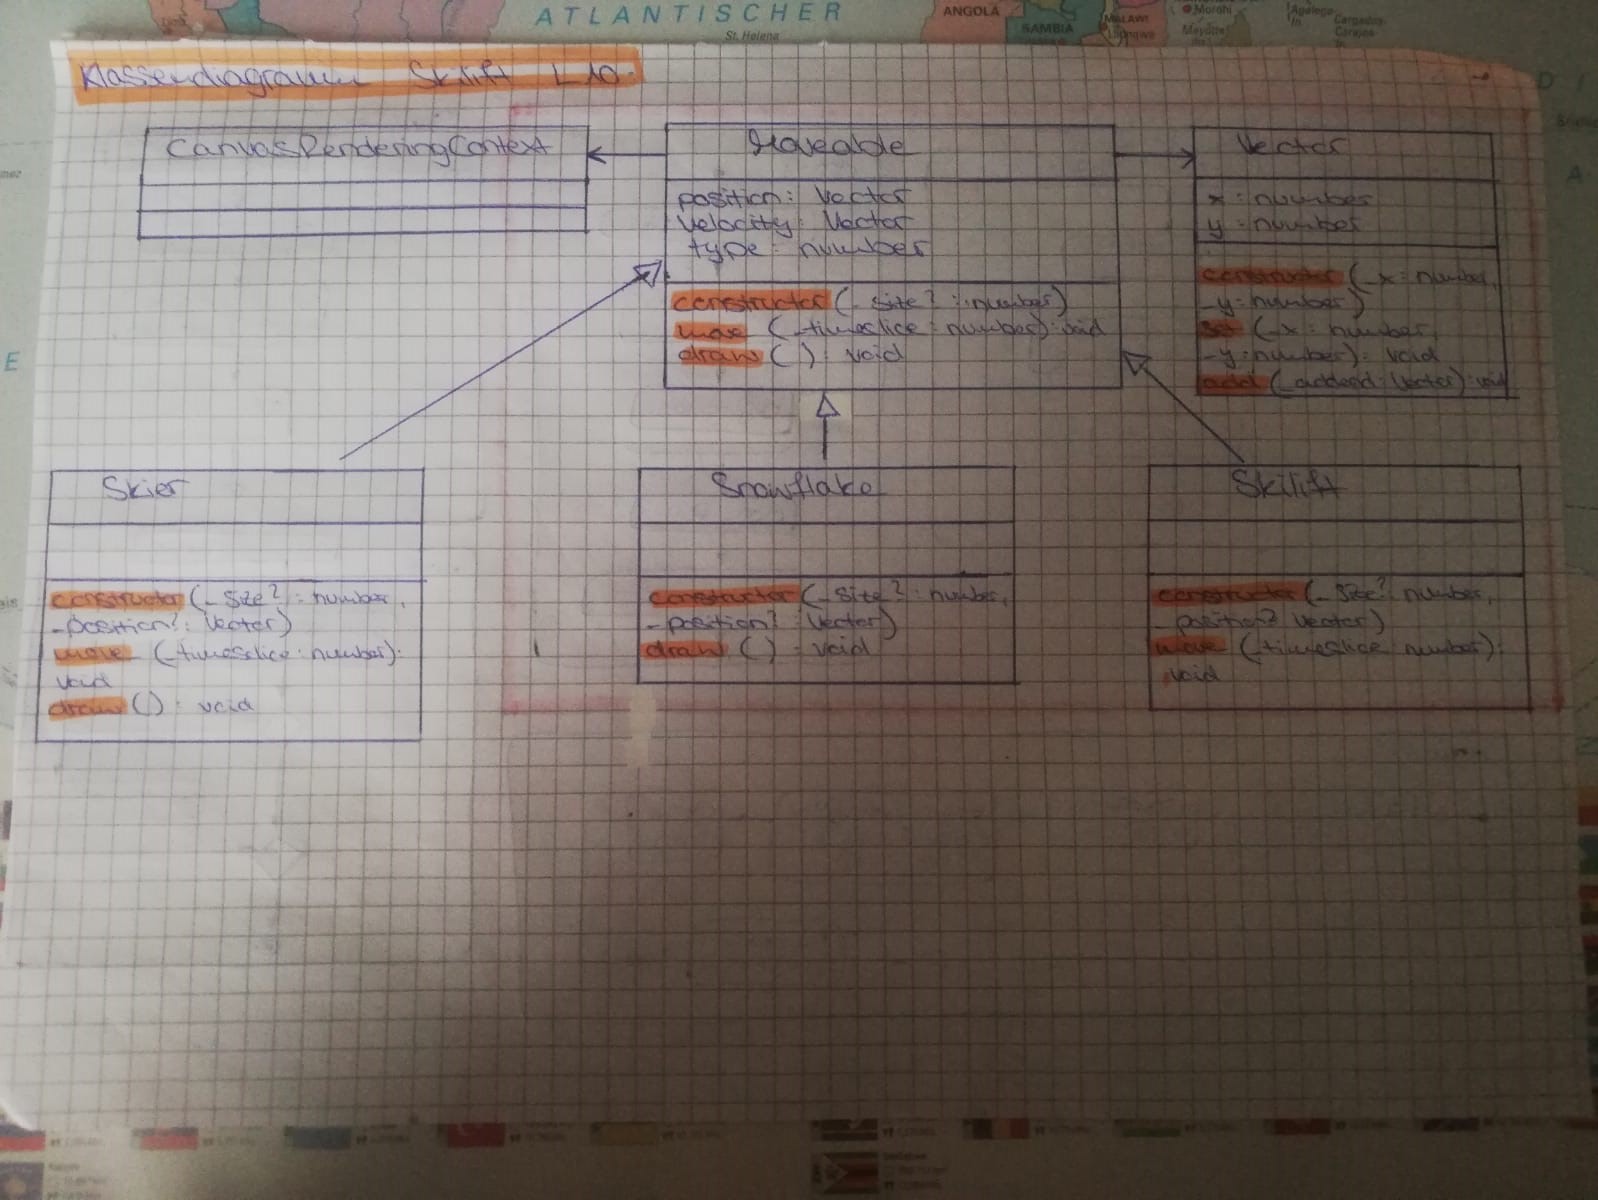 ATLANTISCHER
St. Helena
ANGOLA
SAMBIA
MALAWI
Lilongwe
Moroni
Klassendiagramm Skilift L10
CanvasRenderingContext
Moveable
position: Vector
velocity: Vector
type: number
constructor (_size? : number)
move (_timeslice: number): void
draw ( ): void
Vector
x: number
y: number
constructor (_x: number,
_y: number)
set (_x: number
_y: number): void
add (_addend: Vector): void
Skier
constructor (_size? : number,
_position?: Vector)
move (_timeslice: number):
void
draw (): void
Snowflake
constructor (_size? : number,
_position? : Vector)
draw ( ): void
Skilift
constructor (_size? number,
_position? Vector)
move (_timeslice number):
void